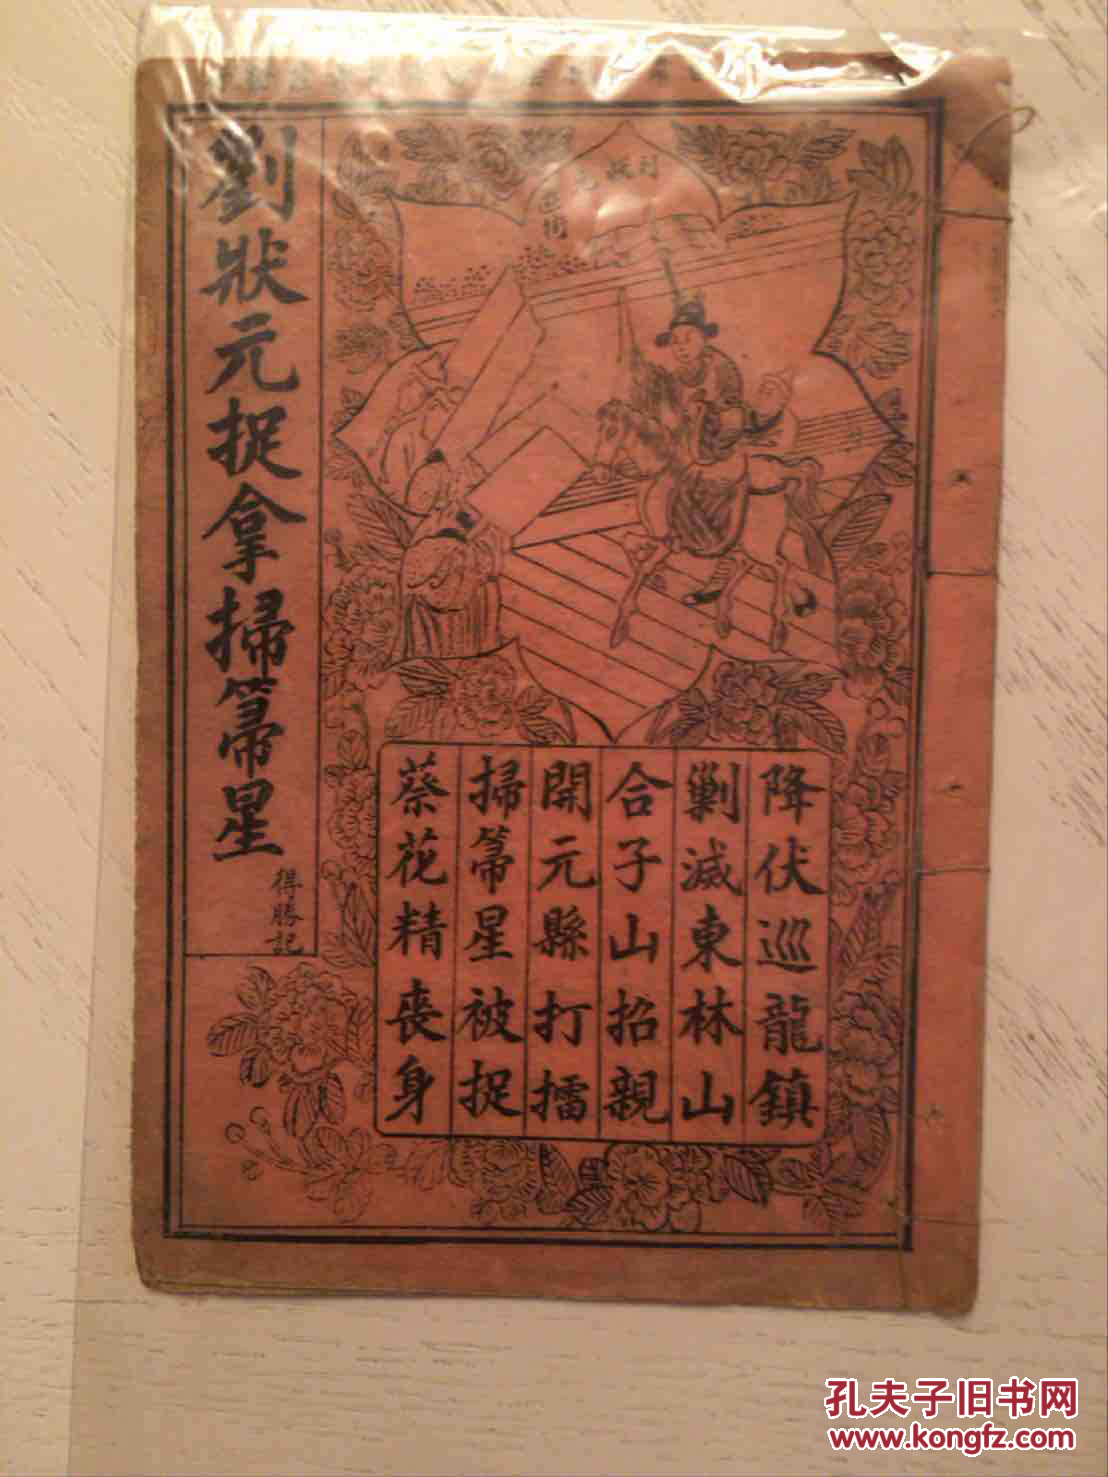 降伏巡龍鎮
剿滅東林山
合子山招親
開元縣打擂
掃箒星被捉
蔡花精喪身
劉狀元捉拿掃箒星
得勝記
孔夫子旧书网
www.kongfz.com